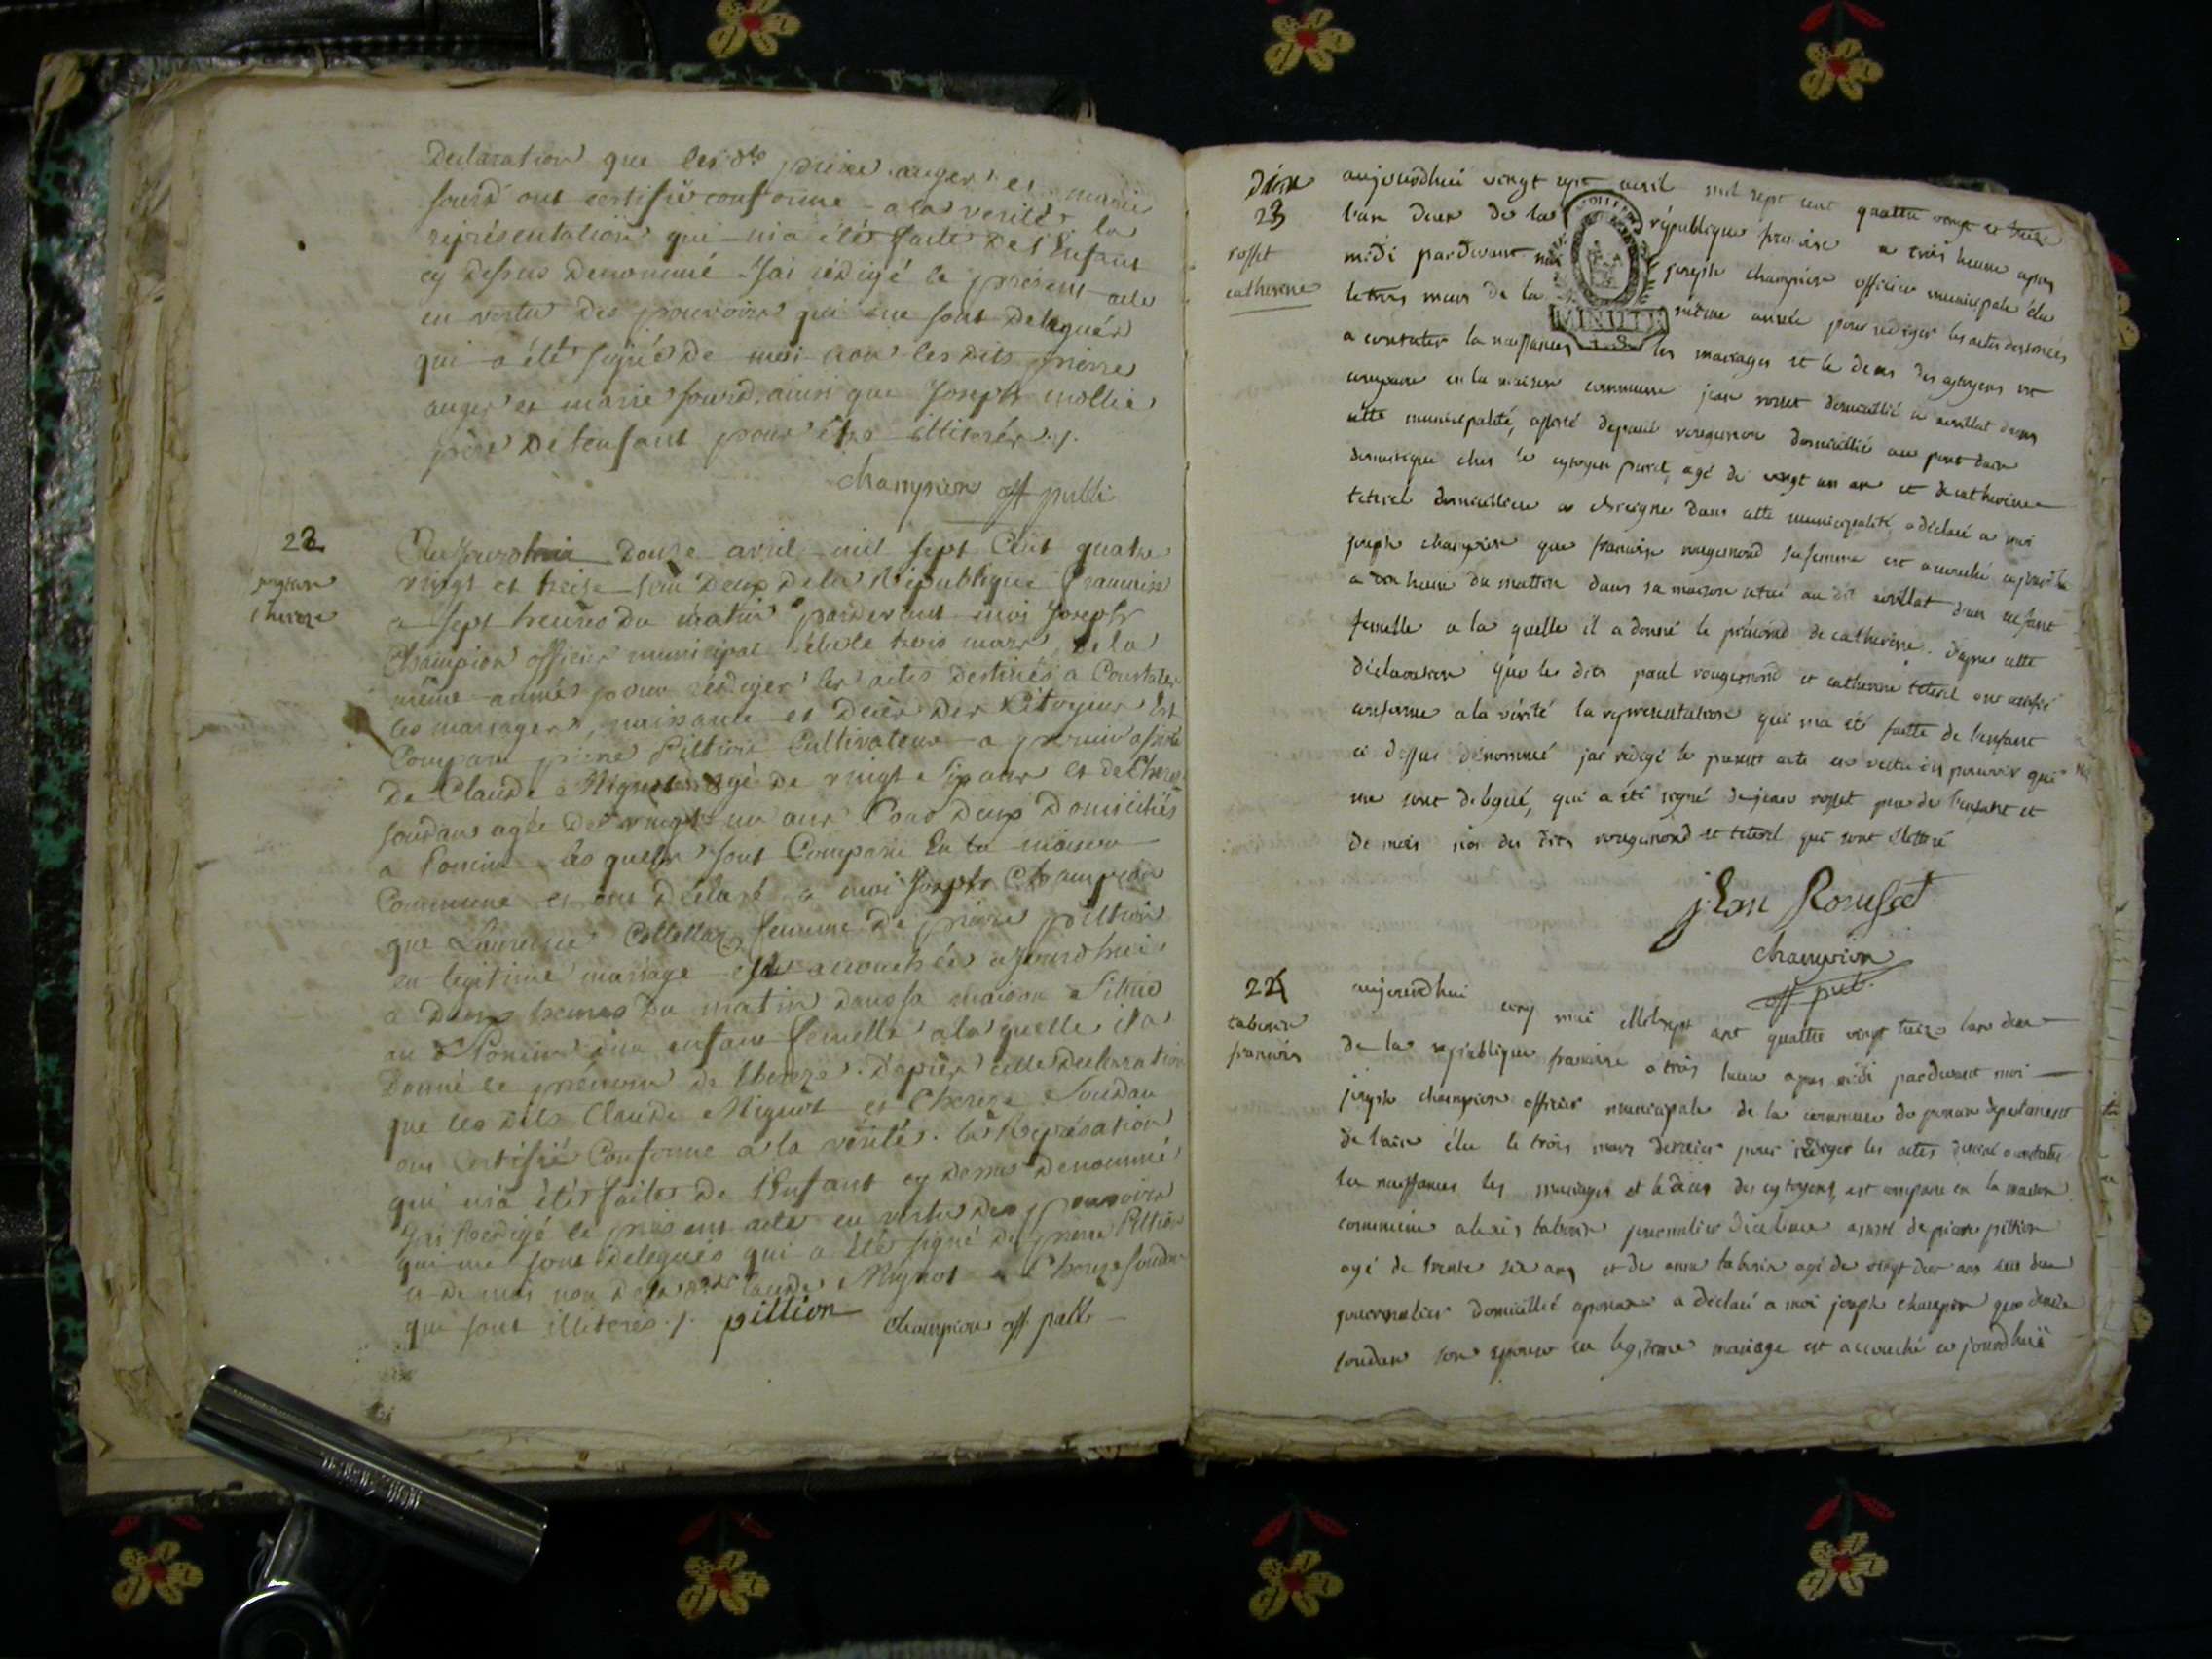 Declaration que les dts pierre auger et marie
sourd ont certifié conforme a la verité la
représentation qui m'a été faite de l'Enfant
cy dessus denommé J'ai rédigé le présent acte
en vertu des pouvoirs qui me sont delegués
qui a été signé de moi non les dits pierre
auger et marie sourd, ainsi que Joseph mollie
père de l'enfant pour être illiterés ./.
champion off publi
22
therese
Aujourdhuie Douze avril mil sept Cent quatre
vingt et treize l'an Deux de la République francaise
a sept heures du matin pardevant moi Joseph
Champion officier municipal élu le trois mars de la
même année pour rédiger les actes destinés a Constater
les mariages, naissance et Décès des Citoyens Est
Comparu pierre Pittion Cultivateur a
De Claude Mignot agé de vingt Six ans et de Therese
soudan agée de vingt un ans tous deux Domiciliés
a Poncin les quels sont Comparu En la maison
Commune et ont Déclaré a moi Joseph Champion
que Laurence Collellaz femme de pierre pittion
en legitime mariage est accouchée aujourdhuie
a Deux heures du matin dans sa maison Situé
au d Poncin d'un enfant femelle a la quelle il a
Donné le prénom de therese. D'après cette Declaration
que les dits Claude Mignot et Therese Soudan
ont Certifié Conforme a la vérité. la Réprésation
qui m'a été faite de l'Enfant cy dessus denommé
J'ai Redigé le présent acte en vertu des pouvoirs
qui me sont délegués qui a été signé de pierre Pittion
et de moi non de Claude Mignot et Therese soudan
qui sont illiterés ./. pittion champion off publ
23
rosset
catherine
aujourdhui vingt sept avril mil sept cent quattre vingt et treize
l'an deux de la république francaise a trois heure apres
midi pardevant moi joseph champion officier municipale élu
le trois mars de la même année pour rédiger les actes destinées
a constater la naissances les mariages et le deces des cytoyens est
comparu en la maison commune jean rosset domicillié a avrillat dans
cette municipalité, assisté de paul rougemond domicillié au pont dain
domestique ches le cytoyen agé de vingt un an et de catherine
teterel domicilliee a dans cette municipalité, a déclaré a moi
joseph champion que francoise rougemond sa femme est accouché aujourdhui
a heure du mattin dans sa maison situé au dit avrillat d'un enfant
femelle a la quelle il a donné le prénom de catherine. d'apres cette
déclaration que les dits paul rougemond et catherine teterel ont certifié
conforme a la vérité la representation qui ma été faitte de l'enfant
ci dessus dénommé jai rédigé le present acte en vertu des pouvoir qui
me sont delegué, qui a été signé de jean rosset pere de l'enfant et
de moi non des dits rougemond et teterel qui sont illettré
jean Rousset
champion
off pub.
24
tabouin
francois
aujourdhui cinq mai millesept cent quattre vingt treize l'an deux
de la république francaise a trois heure apres midi pardevant moi
joseph champion officier municipale de la commune de poncin département
de l'ain élu le trois mars dernier pour rédiger les actes destiné a constater
les naissances les mariages et le deces des cytoyens, est comparu en la maison
commune alexis tabouin journalier assisté de pierre pittion
agé de trente six ans et de anne tabouin agé de vingt deux ans tous deux
journalier domicillié a poncin a déclaré a moi joseph champion que
soudan son epouse en legitime mariage est accouché aujourdhuii
MINUTE